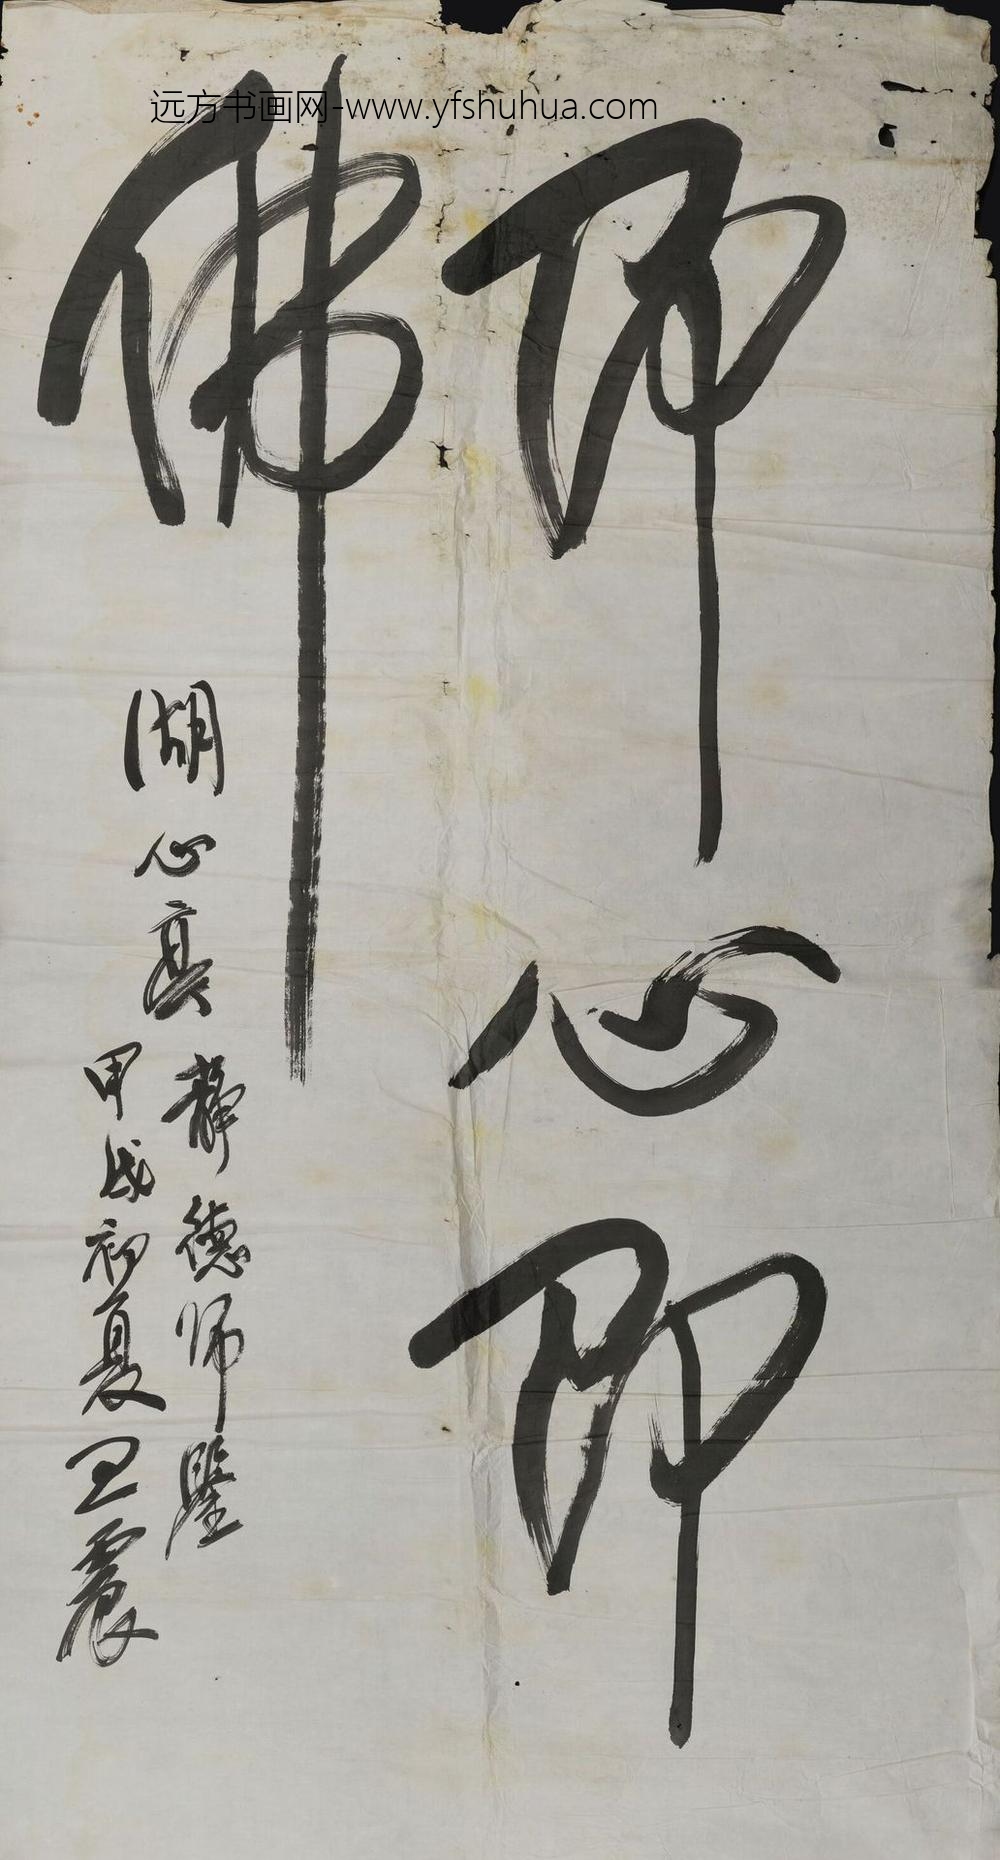 远方书画网-www.yfshuhua.com
即心即
佛
湖心亭
静德师鉴
甲戌初夏王震